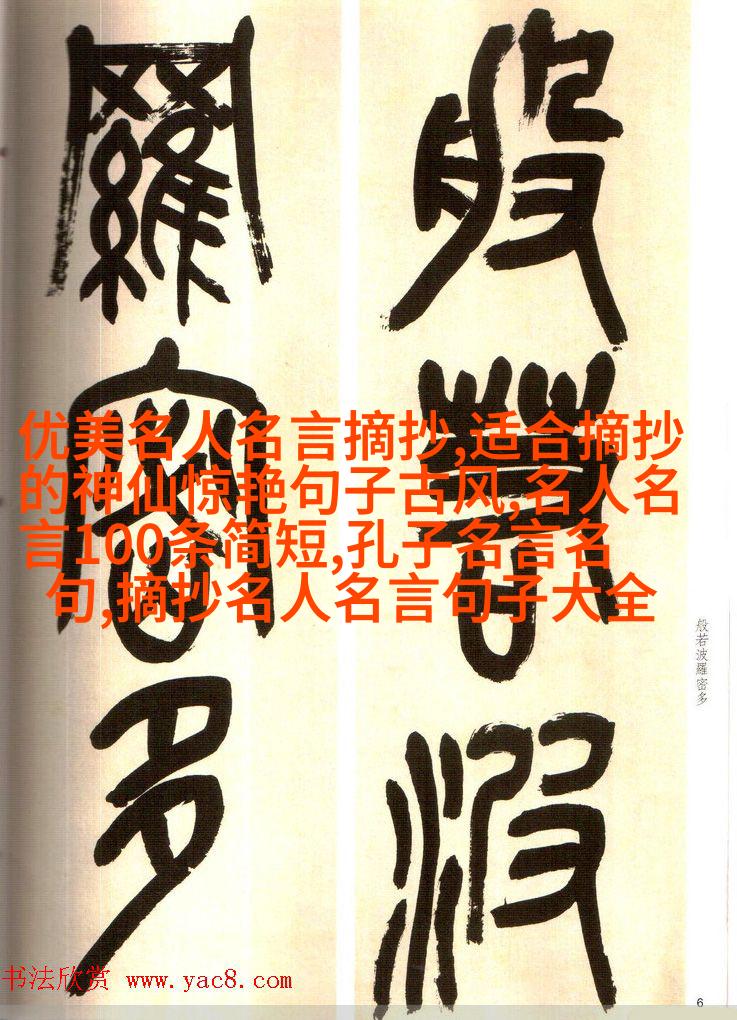 般若波
羅密多
优美名人名言摘抄,适合摘抄
的神仙惊艳句子古风,名人名
言100条简短,孔子名言名
句,摘抄名人名言句子大全
般若波羅密多
书法欣赏 www.yac8.com
6